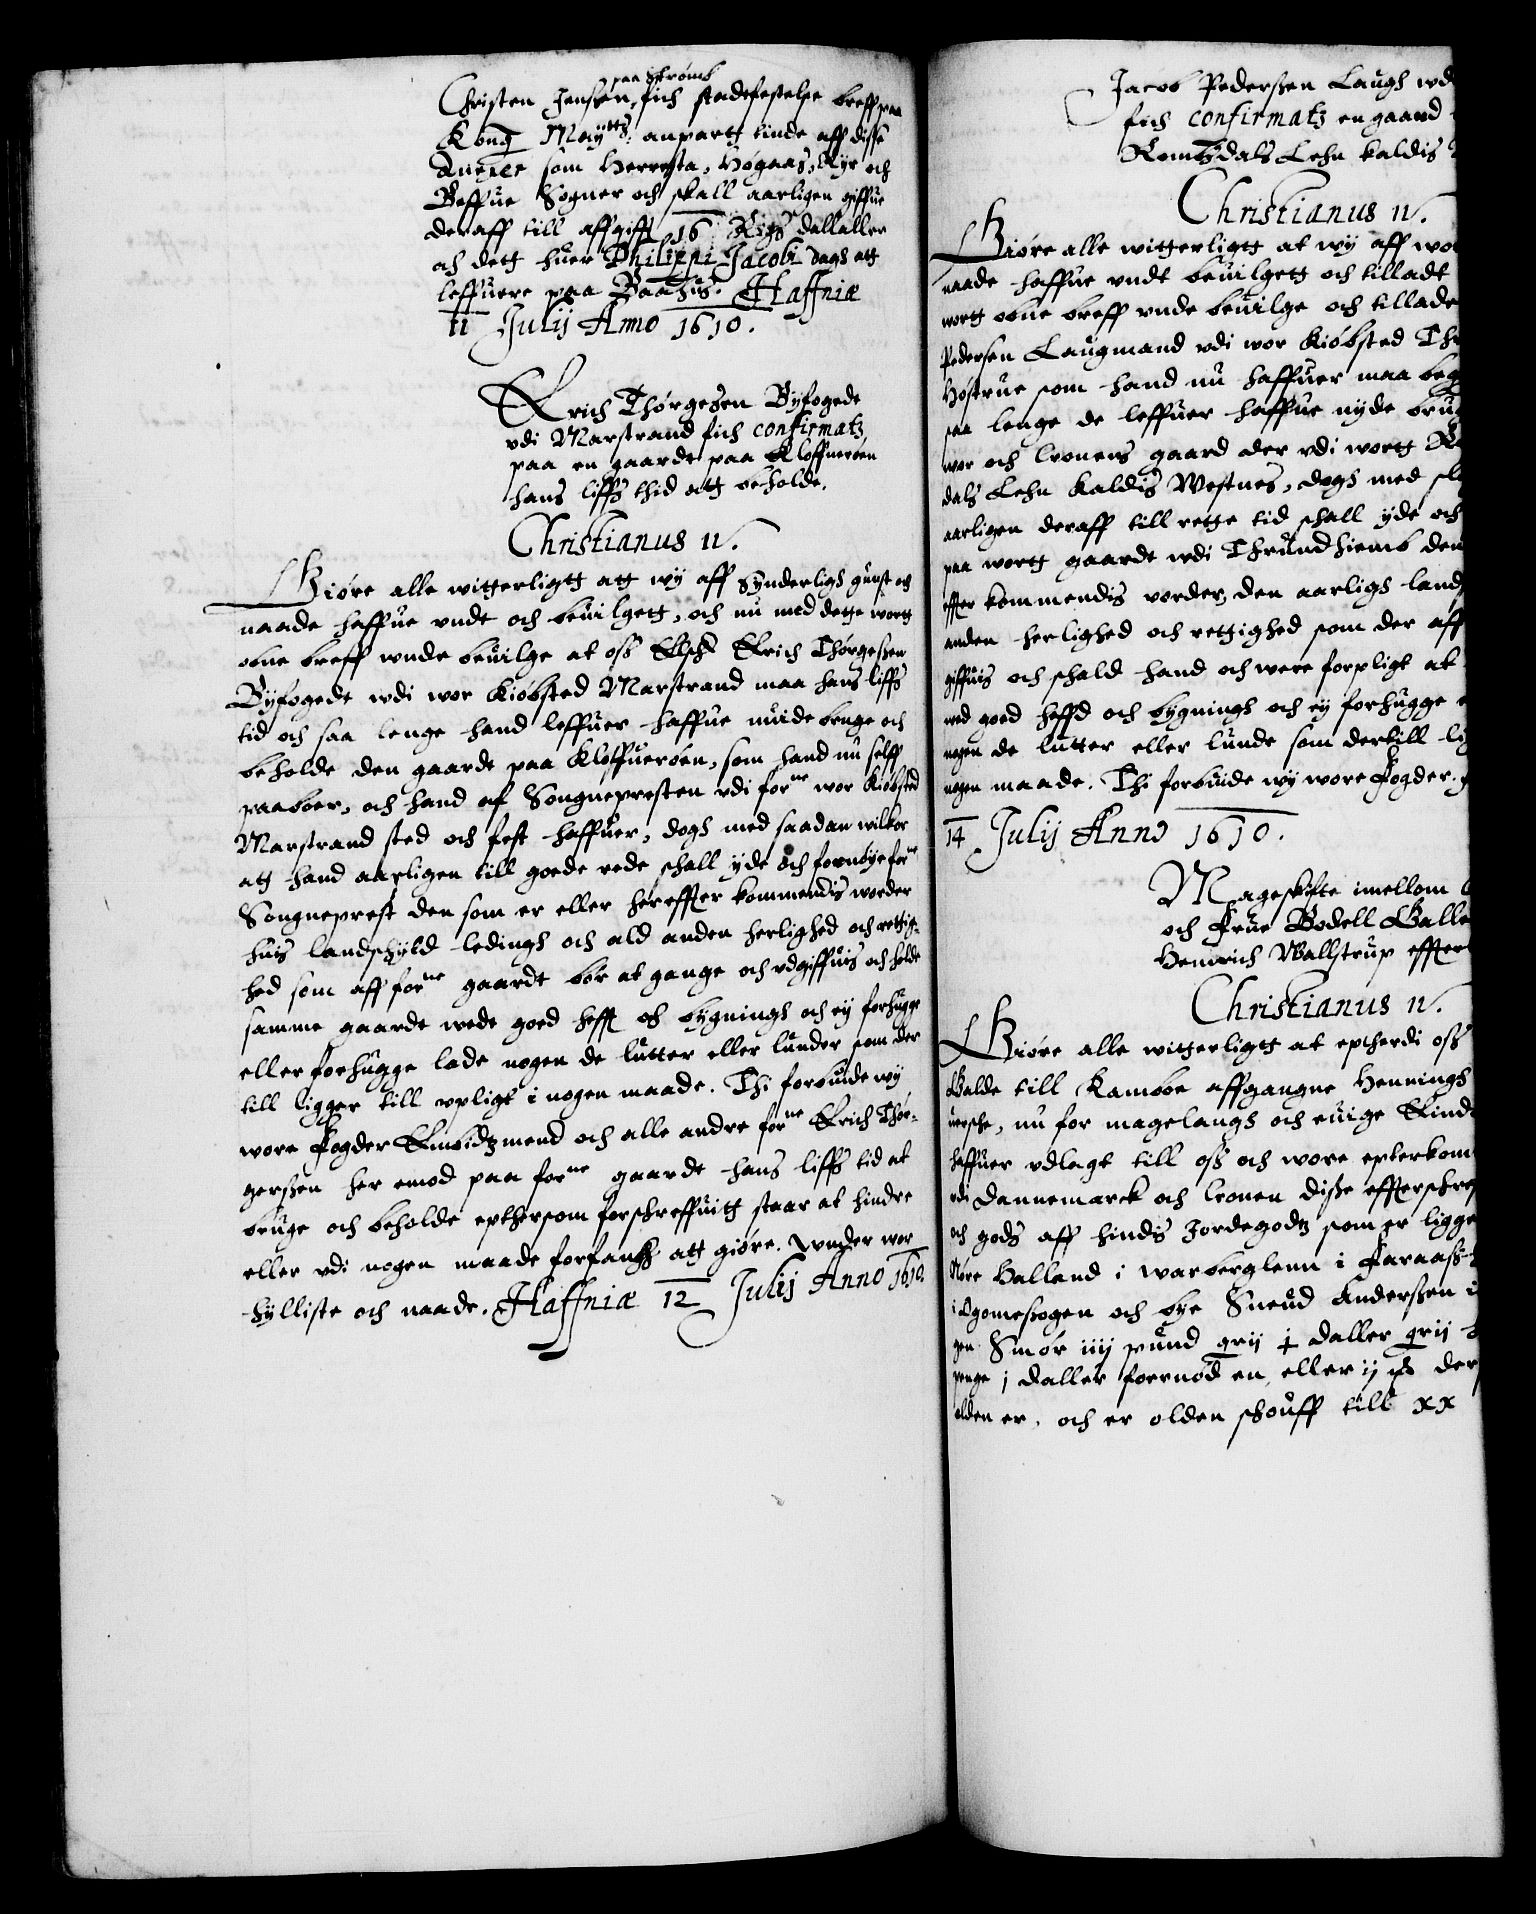 paa Strømb
Christen Jenßen, fich stadtfestelse breff paa
Kong Maÿttz: anpartt tinde aff disse
Annexer som Herresta, Høgaas, Kyr och
Beffue Sogner och skall aarligen giffue
deraff till affgifft 16 Rigs dallaller
och dett huer Philippi Jacobi dags att
leffuere paa Baahus. Haffniæ
11 Julij Anno 1610.
Erich Thørgesen Byfogede
vdi Marstrand fich confirmatz
paa en gaardt paa Kløffuerøen
hans liffs thid att beholde.
Christianus 4.
Giøre alle witterligtt att wÿ aff synderligh gunst och
naade haffue vndt och beuilgett, och nu med dette wortt
obne breff wnde beuilge at oss Elsch Erich Thørgeßen
Bÿfogedt wdi wor Kiøbsted Marstrand maa hans liffs
tid och saa lenge hand leffuer haffue nuide bruge och
beholde den gaardt paa Kløffuerøen, som hand nu self
paaboer, och hand af Songnepresten vdi forne wor Kiøbsted
Marstrand sted och fest haffuer, dogh med saadan wilkor
att hand aarligen till goede rede schall ÿde och fornøye forne
Songneprest den som er eller hereffter kommendis worder
huis landschÿld ledingh och ald anden herlighed och rettig-
hed som aff forne gaardt bør at gange och vdgiffuis och holde
samme gaardt wede goed hefft och bygningh och ey forhugge
eller forhugge lade nogen de lutter eller lunder som der
till ligger till vpligt i nogen maade. Thi forbiude wÿ
wore Fogder Embidtzmend och alle andre forne Erich Thør-
gerßen her emod paa forne gaardt hans liffs tid at
bruge och beholde epthersom forschreffuitt staar at hindre
eller vdi nogen maade forfangh att giøre. Wnder wor
hÿlliste och naade. Haffniæ 12 Julij Anno 1610.
Jacob Pederßen Laugh wd
fich confirmatz en gaard
Rombsdals Lehn kaldis
Christianus 4.
Giøre alle witterligtt at wÿ aff wo
naade haffue vndt beuilgett och tilladt
wortt obne breff vnde beuilge och tillade
Pedersen Laugmand vdi wor Kiøbsted Th
Høstrue som hand nu haffuer maa beg
saa lenge de leffuer haffue nÿde bru
wor och Cronens gaard der vdi wortt R
dals Lehn kaldis Westnes, dogh med sl
aarligen deraff till rette tid schall ÿde och
paa wortt gaardt wdi Thrundhiemb den
effter kommendis worder, den aarligh land
anden herlighed och rettighed som der aff
giffuis och schald hand och were forpligt at
wed goed heffd och bygningh och eÿ forhugge e
nogen de lutter eller lunde som dertill li
nogen maade. Thi forbiude wÿ wore Fogder.
14 Julij Anno 1610.
Mageskifte imellom
och Frue Bodell Galle
Henrich Wallstrup effter
Christianus 4.
Giøre alle witterligtt at eptherdi oss
Galde till Kamboe affgangne Henningh
uersche, nu for magelaugh och euige Eind
haffuer vdlagt till oss och wore epterkom
vdi Dannemarck och Cronen disse effterschre
och gods aff hindis Jordegodtz som er ligge
Nøre Halland i warberglenn i Faraaß
i Ogomeßogen och bye Sueud Anderßen
gen Smør iiij pund grij ɉ daller grij
penge j daller foernød en, eller ij ß der
olden er, och er olden schouff till xx